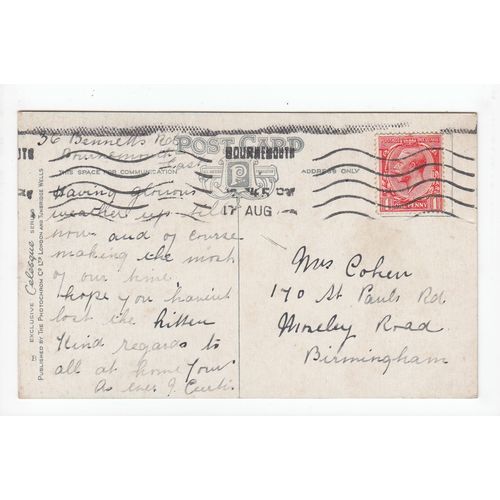 36 Bennetts Rd
Bournemouth
East
POST CARD
THIS SPACE FOR COMMUNICATION
ADDRESS ONLY
BOURNEMOUTH
45
17 AUG
Having glorious
weather up till
now and of course
making the most
of our time
hope you havint
lost the kitten
Kind regards to
all at home Your
As ever J. Curtis
Mrs Cohen
170 St Pauls Rd
Moseley Road
Birmingham
1 ONE PENNY 1
THE EXCLUSIVE Celesque SERIES
PUBLISHED BY THE PHOTOCHROM CO. LTD. LONDON AND TUNBRIDGE WELLS